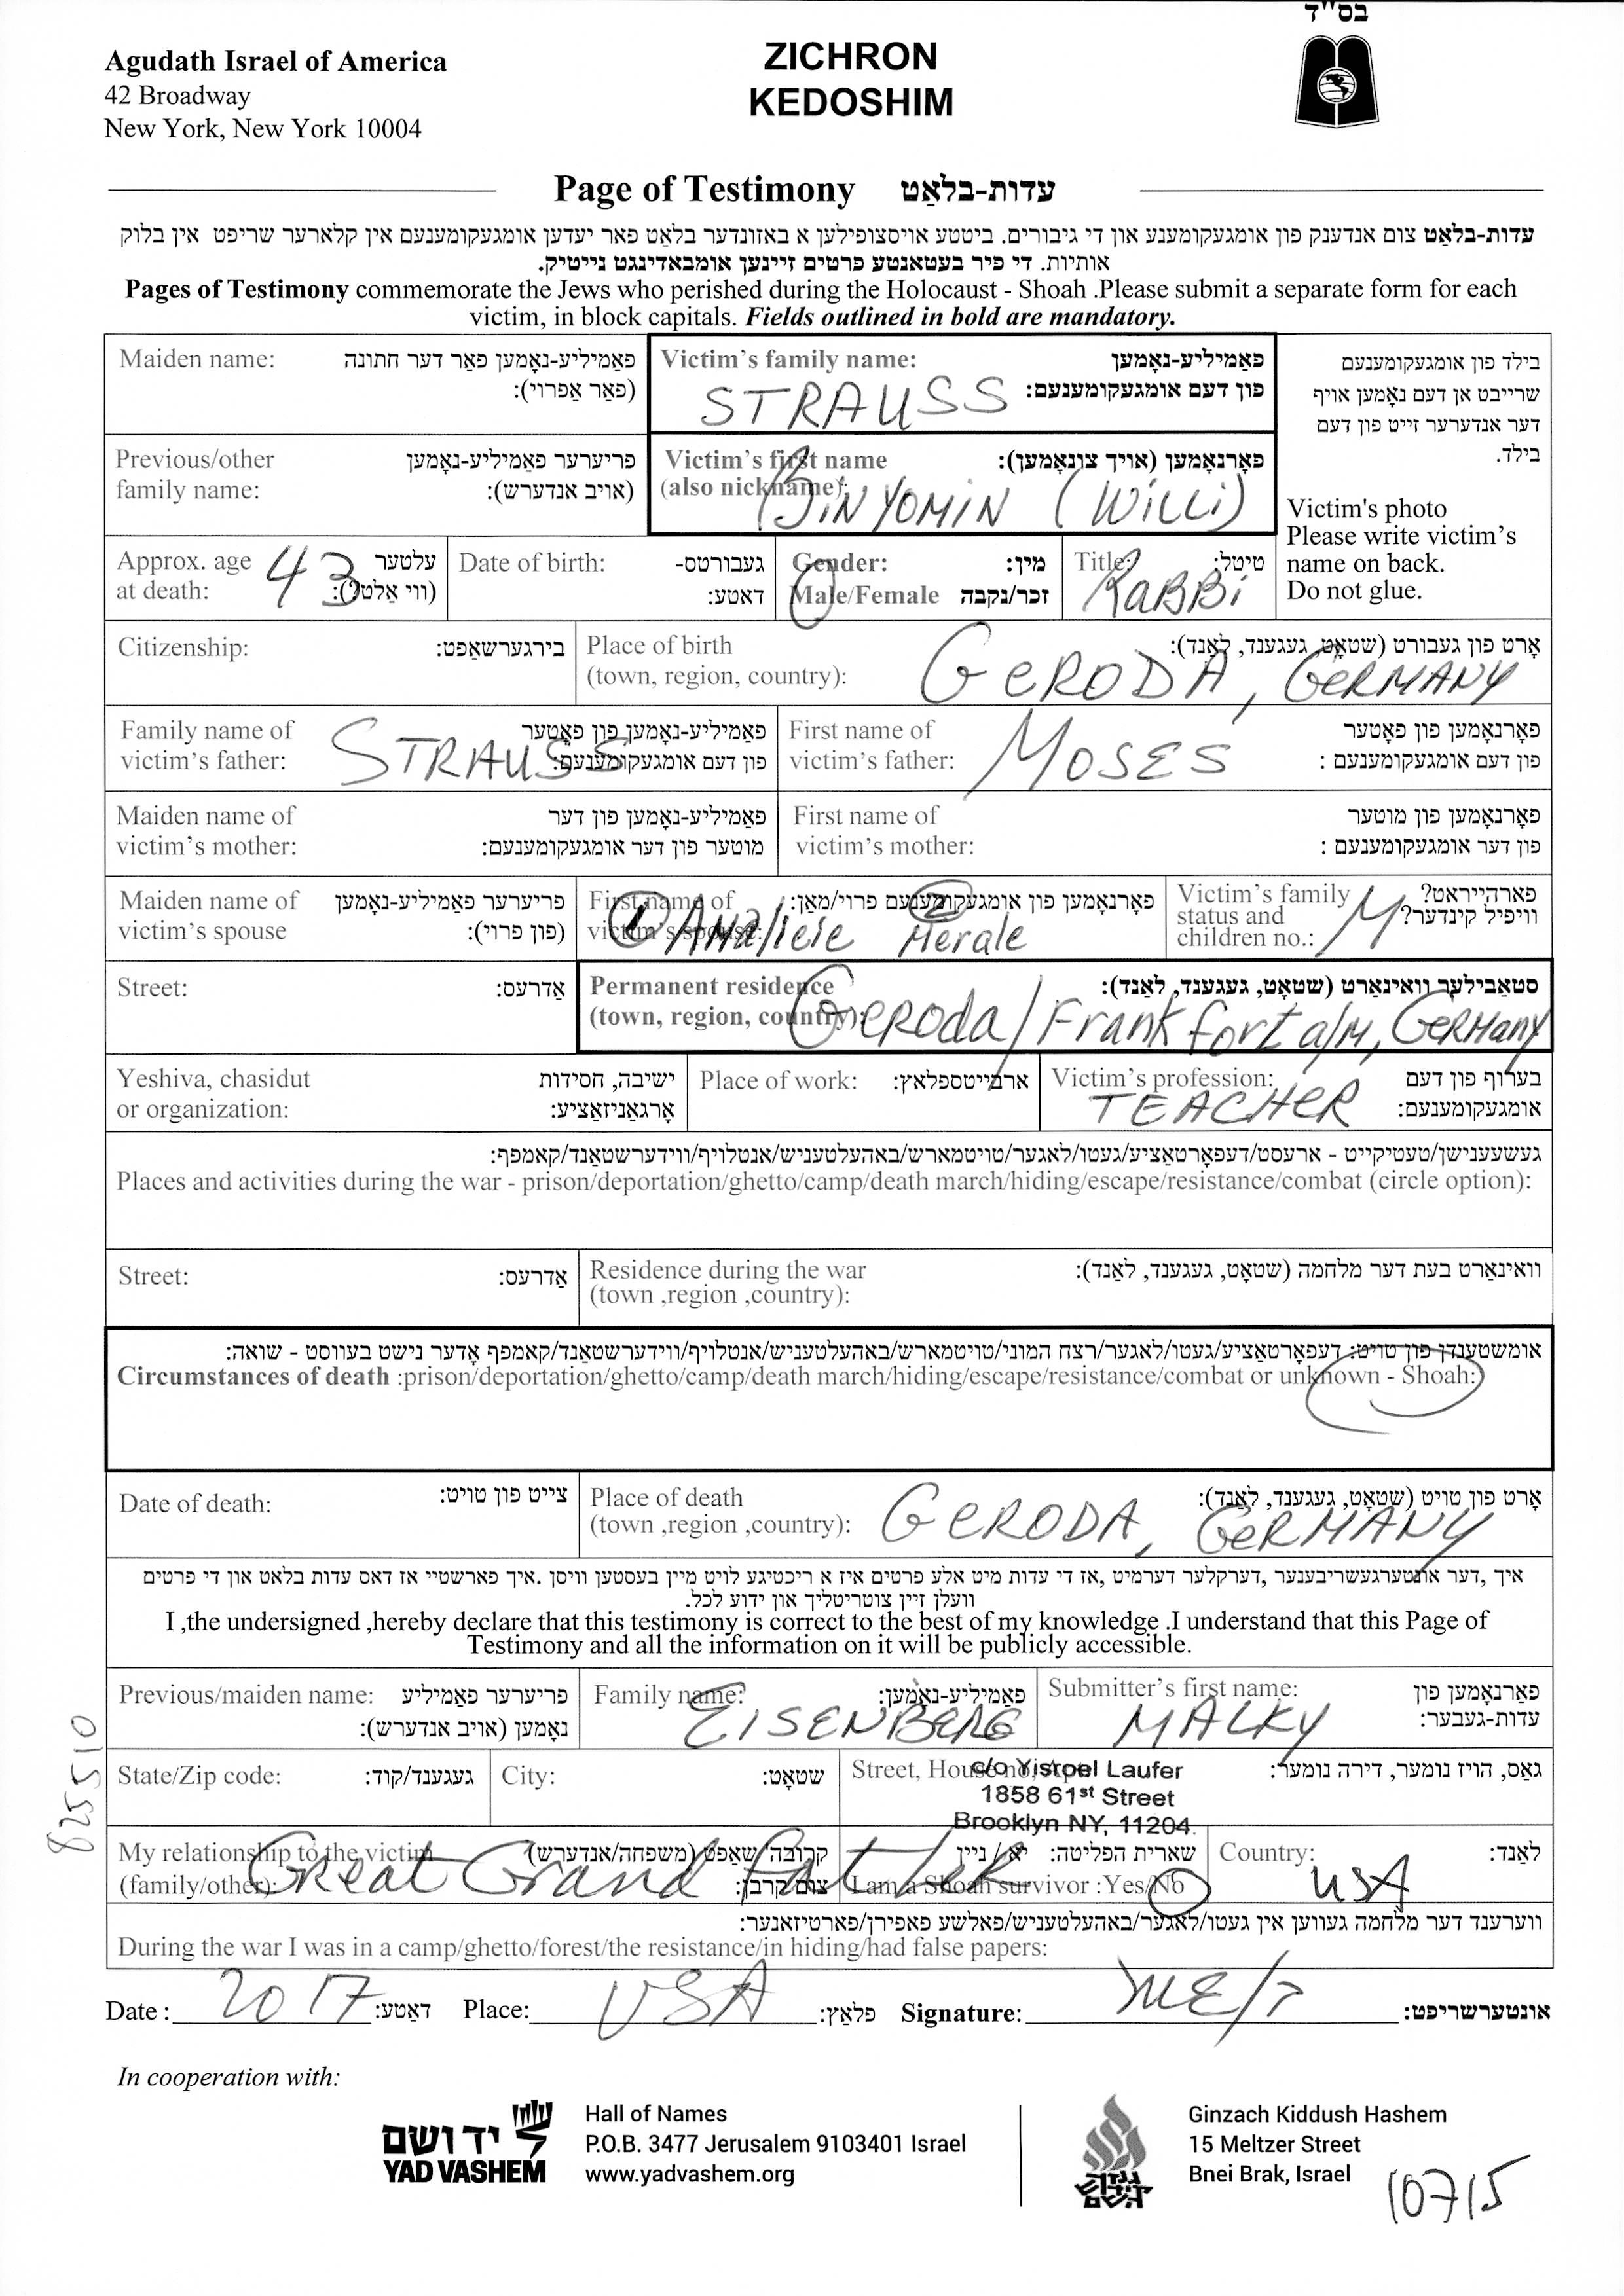 בס"ד
Agudath Israel of America
42 Broadway
New York, New York 10004
ZICHRON
KEDOSHIM
Page of Testimony עדות-בלאַט
עדות-בלאַט צום אנדענק פון אומגעקומענע און די גיבורים. ביטטע אויסצופילען א באזונדער בלאַט פאר יעדען אומגעקומענעם אין קלארער שריפט אין בלוק
אותיות. די פיר בעטאנטע פרטים זיינען אומבאדינגט נייטיק.
Pages of Testimony commemorate the Jews who perished during the Holocaust - Shoah .Please submit a separate form for each
victim, in block capitals. Fields outlined in bold are mandatory.
Maiden name: פאַמיליע-נאָמען פאַר דער חתונה
(פאר אַפרוי):
Victim's family name: פאַמיליע-נאָמען
פון דעם אומגעקומענעם:
STRAUSS
בילד פון אומגעקומענעם
שרייבט אן דעם נאָמען אויף
דער אנדערער זייט פון דעם
בילד.
Victim's photo
Please write victim's
name on back.
Do not glue.
Previous/other פריערער פאַמיליע-נאָמען
family name: (אויב אנדערש):
Victim's first name פאָרנאָמען (אויך צונאָמען):
(also nickname):
BINYOMIN (WILLI)
Approx. age עלטער
at death: (ווי אַלט?):
43
Date of birth: געבורטס-
דאטע:
Gender: מין:
Male/Female זכר/נקבה
Title: טיטל:
RABBI
Citizenship: בירגערשאַפט:
Place of birth אָרט פון געבורט (שטאָט, געגענד, לאַנד):
(town, region, country):
GERODA, GERMANY
Family name of פאַמיליע-נאָמען פון פאָטער
victim's father: פון דעם אומגעקומענעם:
STRAUSS
First name of פאָרנאָמען פון פאָטער
victim's father: פון דעם אומגעקומענעם :
MOSES
Maiden name of פאַמיליע-נאָמען פון דער
victim's mother: מוטער פון דער אומגעקומענעם:
First name of פאָרנאָמען פון מוטער
victim's mother: פון דער אומגעקומענעם :
Maiden name of פריערער פאַמיליע-נאָמען
victim's spouse (פון פרוי):
First name of פאָרנאָמען פון אומגעקומענעם פרוי/מאַן:
victim's spouse:
1 Amalieie 2 Merale
Victim's family פארהייראט?
status and וויפיל קינדער?
children no.:
M
Street: אַדרעס:
Permanent residence סטאַבילער וואינאַרט (שטאָט, געגענד, לאַנד):
(town, region, country):
Geroda/Frankfort a/M, Germany
Yeshiva, chasidut ישיבה, חסידות
or organization: אָרגאַניזאַציע:
Place of work: ארבייטספלאץ:
Victim's profession: בערוף פון דעם
אומגעקומענעם:
TEACHER
געשעענישן/טעטיקייט - ארעסט/דעפאָרטאַציע/געטו/לאגער/טויטמארש/באהעלטעניש/אנטלויף/ווידערשטאַנד/קאמפף:
Places and activities during the war - prison/deportation/ghetto/camp/death march/hiding/escape/resistance/combat (circle option):
Street: אַדרעס:
Residence during the war וואינארט בעת דער מלחמה (שטאָט, געגענד, לאַנד):
(town ,region ,country):
אומשטענדן פון טויט: דעפאָרטאַציע/געטו/לאגער/רצח המוני/טויטמארש/באהעלטעניש/אנטלויף/ווידערשטאַנד/קאמפף אָדער נישט בעוווסט - שואה:
Circumstances of death :prison/deportation/ghetto/camp/death march/hiding/escape/resistance/combat or unknown - Shoah:
Date of death: צייט פון טויט:
Place of death אָרט פון טויט (שטאָט, געגענד, לאַנד):
(town ,region ,country):
GERODA, GERMANY
איך ,דער אונטערגעשריבענער ,דערקלער דערמיט ,אז די עדות מיט אלע פרטים איז א ריכטיגע לויט מיין בעסטען וויסן .איך פארשטיי אז דאס עדות בלאט און די פרטים
וועלן זיין צוטריטליך און ידוע לכל.
I ,the undersigned ,hereby declare that this testimony is correct to the best of my knowledge .I understand that this Page of
Testimony and all the information on it will be publicly accessible.
Previous/maiden name: פריערער פאַמיליע
נאָמען (אויב אנדערש):
Family name: פאַמיליע-נאָמען:
EISENBERG
Submitter's first name: פאַרנאָמען פון
עדות-געבער:
MALKY
State/Zip code: געגענד/קוד:
City: שטאָט:
Street, House no, Apt גאַס, הויז נומער, דירה נומער:
c/o Yisroel Laufer
1858 61st Street
Brooklyn NY, 11204.
My relationship to the victim קרובה'שאַפט (משפחה/אנדערש)
(family/other): צום קרבן:
Great Grand father
שארית הפליטה: יא / ניין
I am a Shoah survivor :Yes/No
Country: לאַנד:
USA
ווערענד דער מלחמה געווען אין געטו/לאגער/באהעלטעניש/פאלשע פאפירן/פארטיזאנער:
During the war I was in a camp/ghetto/forest/the resistance/in hiding/had false papers:
Date : 2017 דאַטע: Place: USA פלאַץ: Signature: אונטערשריפט:
825510
In cooperation with:
יד ושם
YAD VASHEM
Hall of Names
P.O.B. 3477 Jerusalem 9103401 Israel
www.yadvashem.org
גנזך
קידוש
השם
Ginzach Kiddush Hashem
15 Meltzer Street
Bnei Brak, Israel
10715